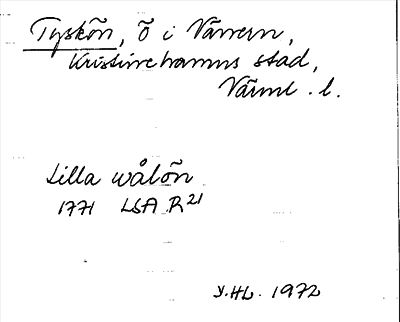 Tyskön, ö i Vänern,
Kristinehamns stad,
Värml. l.
Lilla wålön
1771 LSA R21
Y.HL. 1972